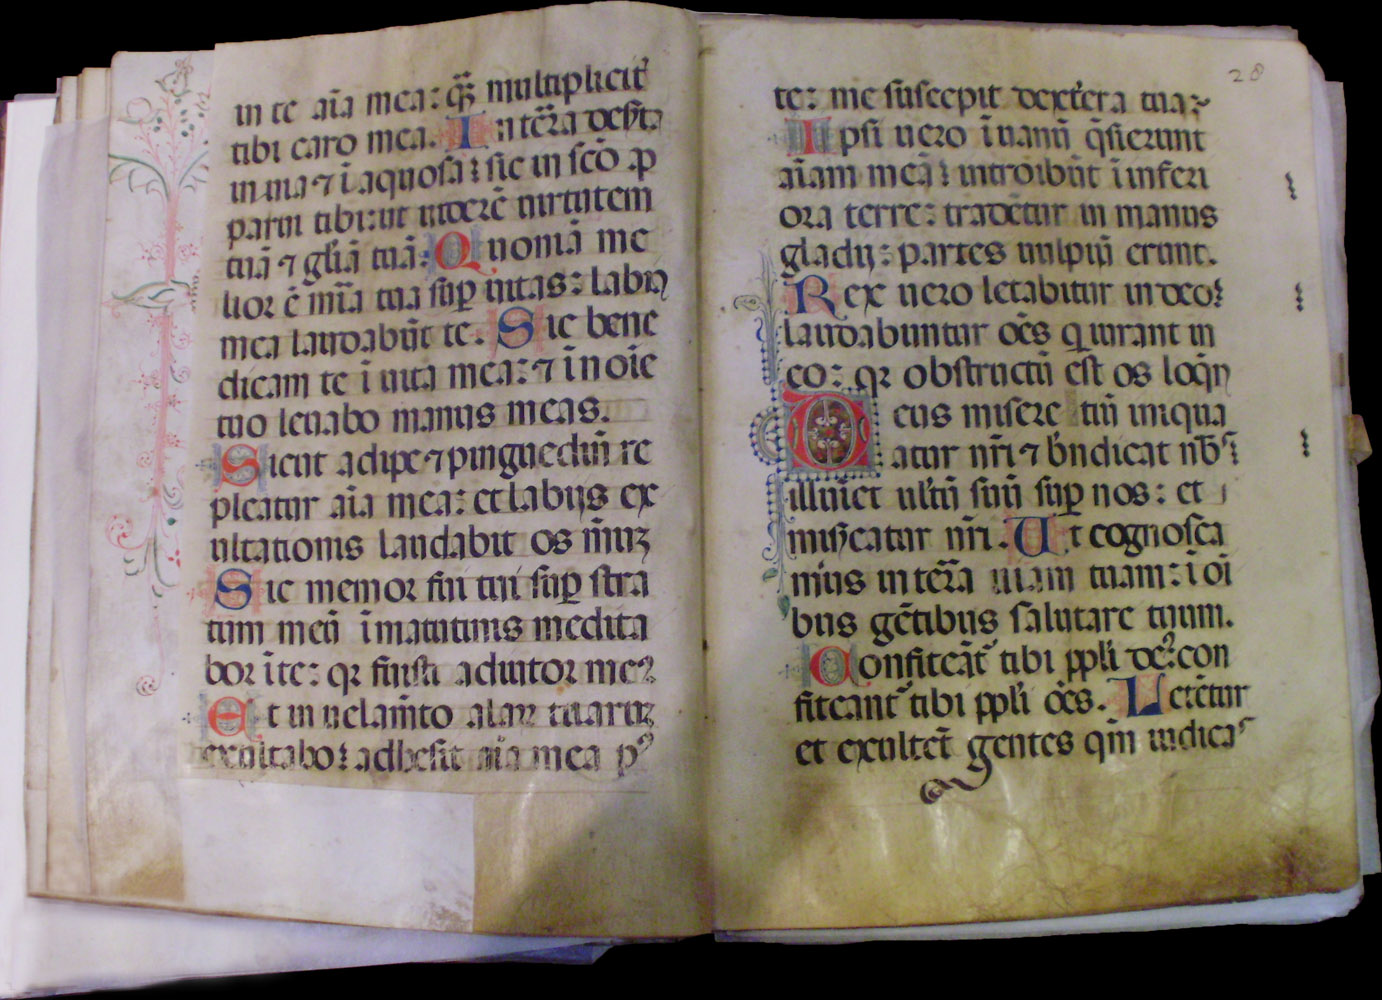 in te aīa mea: q̄ȝ multipliciť
tibi caro mea. In tēra deẜta
inuia ⁊ īaquosa: sic in scō ꝑ
parui tibi: ut uiderē uirtutem
tuā ⁊ gl̄iā tuā. Quoniā me
lior ē mīa tua suꝑ uitas: labia
mea laudabūt te. Sic bene
dicam te ī uita mea: ⁊ īnoīe
tuo leuabo manus meas.
Sicut adipe ⁊ pinguedīn re
pleatur aīa mea: et labijs ex
ultationis laudabit os m̄uȝ
Sic memor fui tui suꝑ stra
tum meū īmatutinis medita
bor īte: qꝛ fuisti adiutor me⁹
Et in uelam̄to alaꝝ tuaruȝ
exultabo: adhesit aīa mea p⁹
28
te: me suscepit dext̄era tua:
Ipsi uero īuanū q̄sierunt
aīam meā: introibūt īinferi
ora terre: tradētur in manus
gladij: partes uulpiū erunt.
Rex uero letabitur in deo:
laudabuntur oēs q iurant in
eo: qꝛ obstructū est os loq̄n
Deus misere tur iniqua
atur nr̄i ⁊ b̄ndicat nob̄
illuīet ult̄ū suū suꝑ nos: et
mis̄eatur nr̄i. Ut cognosca
mus in tēra uiam tuam: ī oī
bus gētibus salutare tuum.
Confiteāt᷑ tibi ppl̄i de⁹: con
fiteant᷑ tibi ppl̄i oēs. Letētur
et exultēt gentes qm̄ iudicas